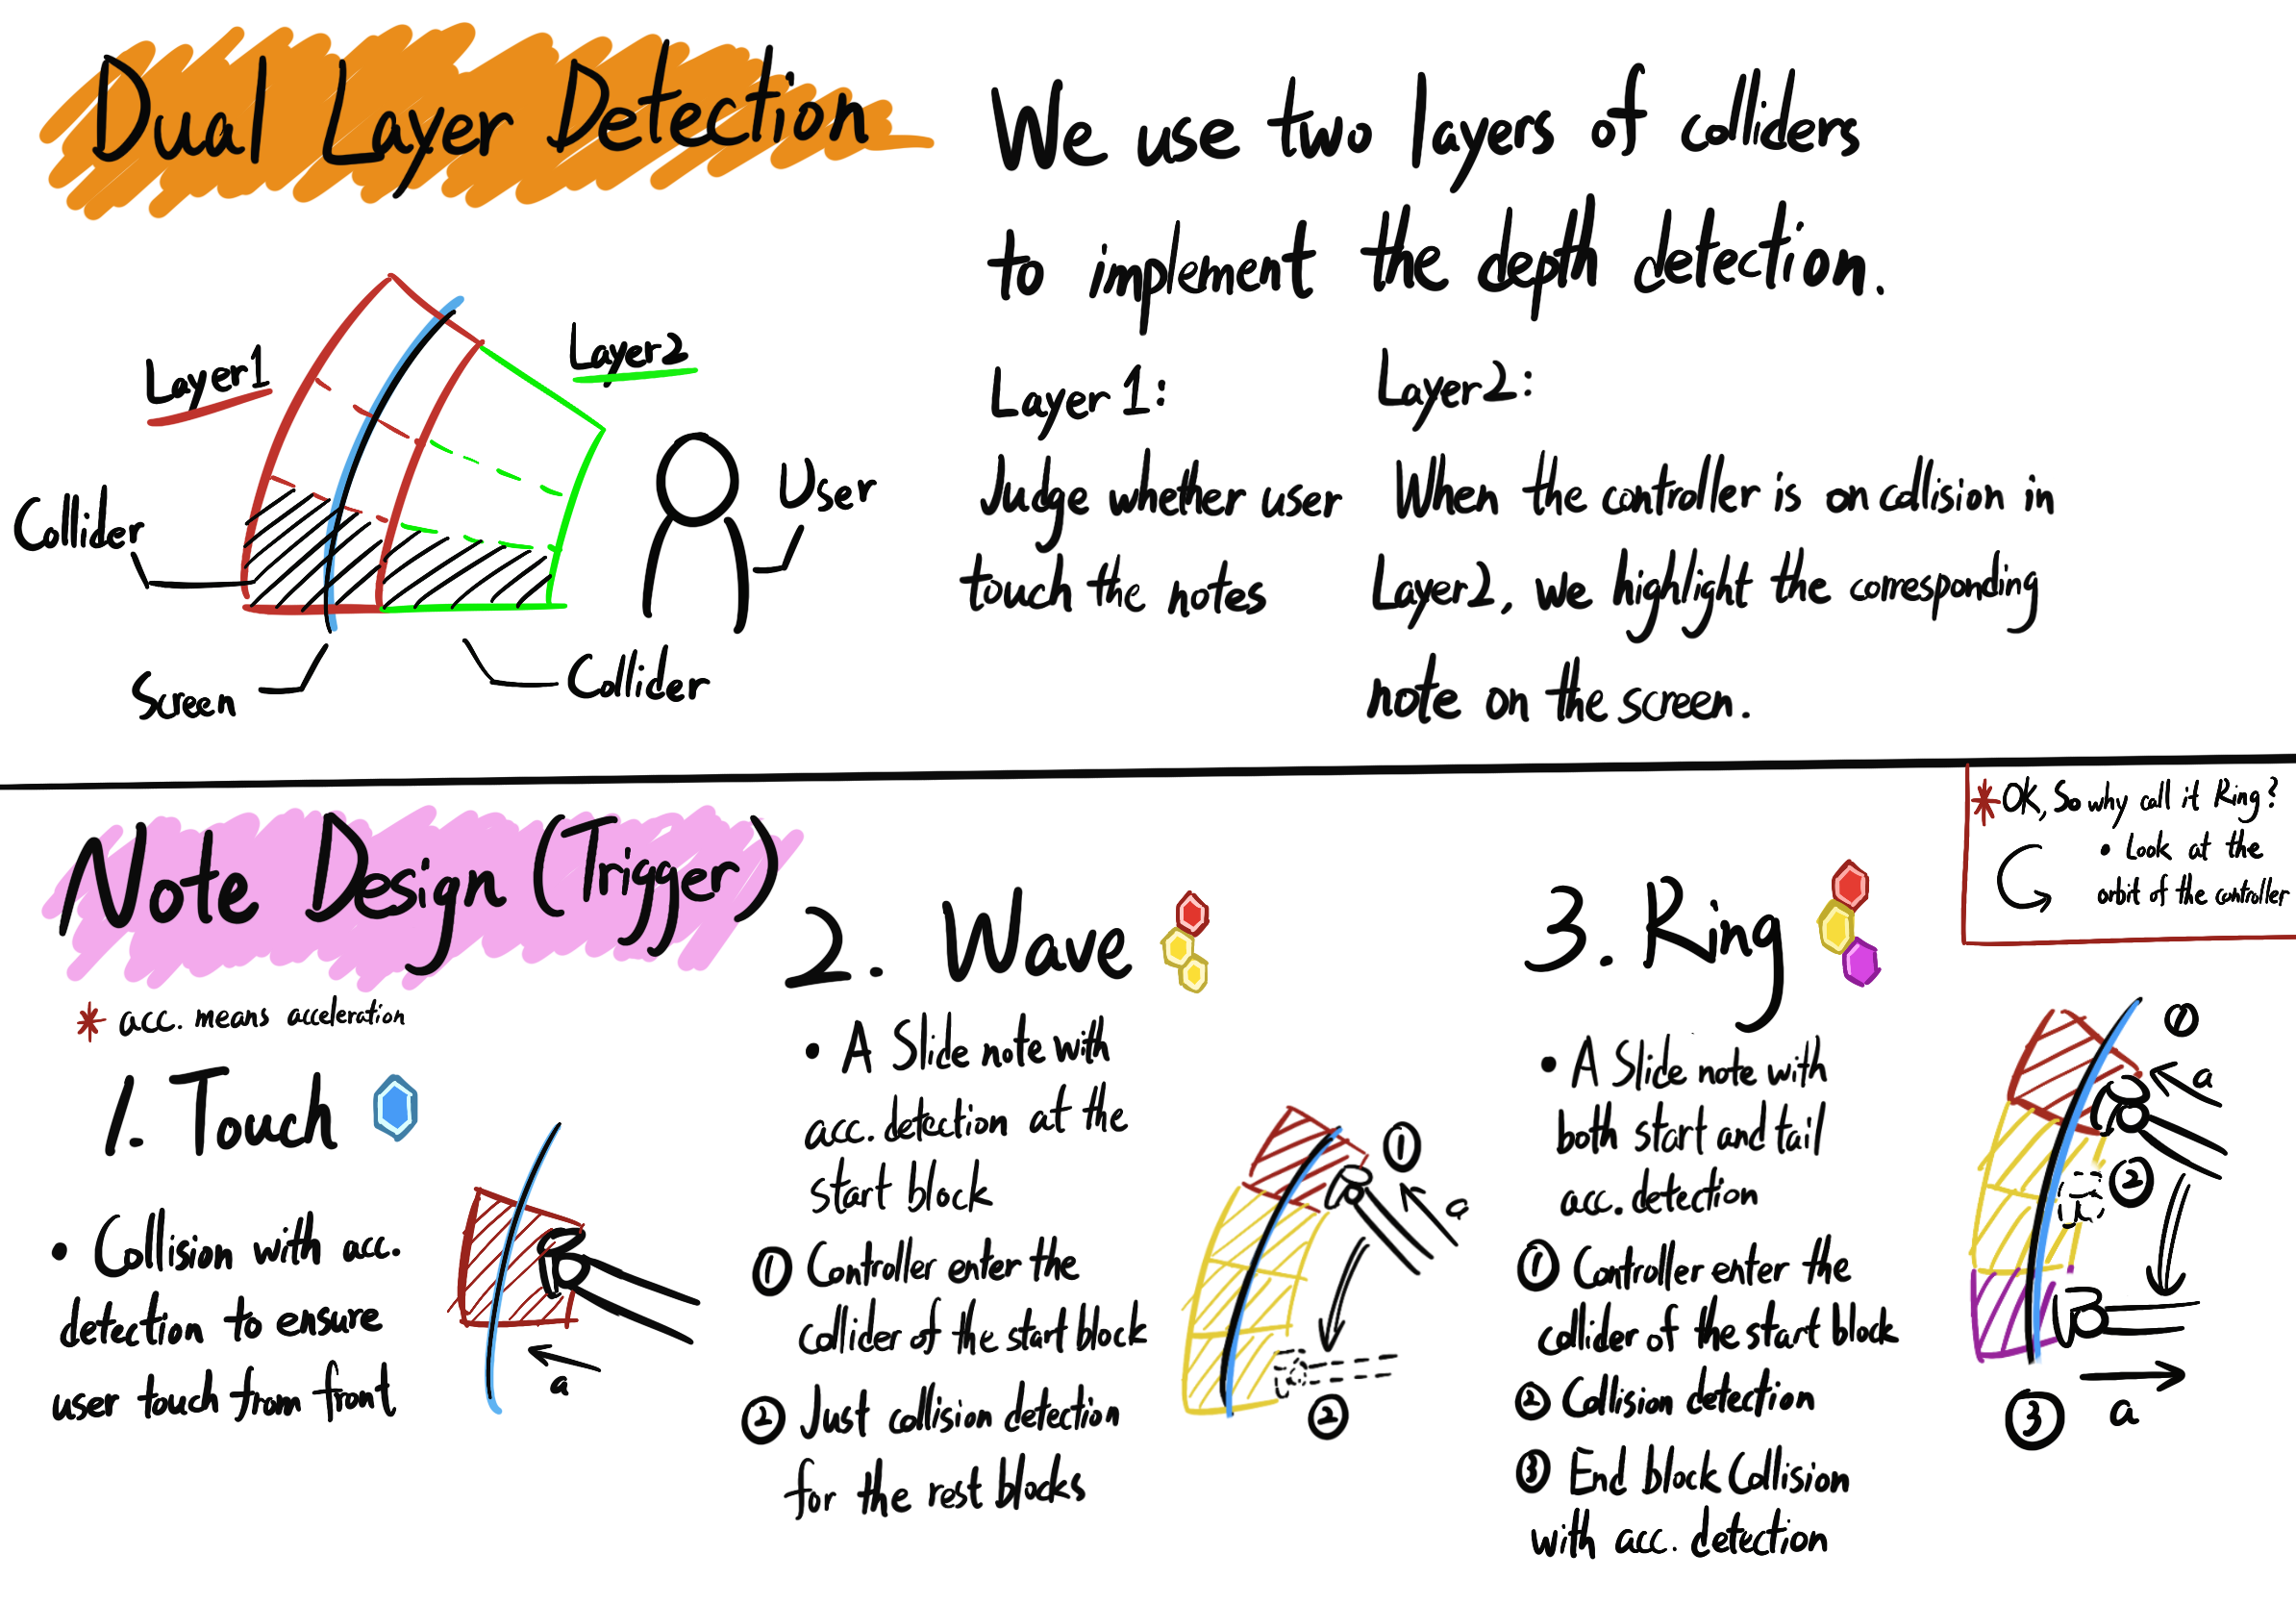 Dual Layer Detection
Layer1
Layer2
Collider
User
Screen
Collider
We use two layers of colliders
to implement the depth detection.
Layer 1:
Judge whether user
touch the notes
Layer2:
When the controller is on collision in
Layer2, we highlight the corresponding
note on the screen.
Note Design (Trigger)
* acc. means acceleration
1. Touch
• Collision with acc.
detection to ensure
user touch from front
a
2. Wave
• A Slide note with
acc. detection at the
start block
① Controller enter the
collider of the start block
② Just collision detection
for the rest blocks
①
a
②
3. Ring
• A Slide note with
both start and tail
acc. detection
① Controller enter the
collider of the start block
② Collision detection
③ End block Collision
with acc. detection
* OK, So why call it Ring?
• Look at the
orbit of the controller
①
a
②
③
a